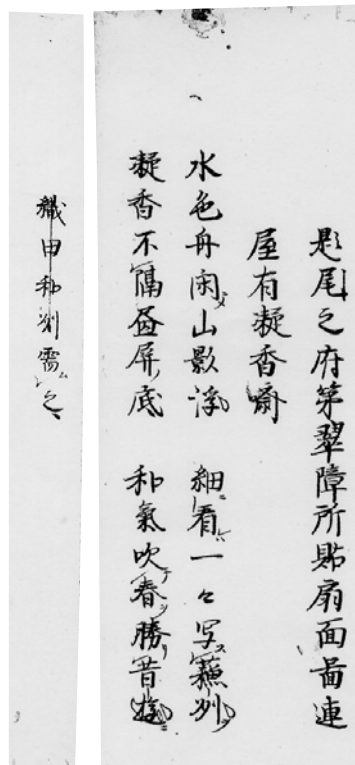 題尾之府茅翠障所貼扇面啚連
屋有凝香齋
水色舟閑山影浮　細看一々写蘇州
凝香不隔畫屏底　和氣吹春勝昔遊
織田和州需之